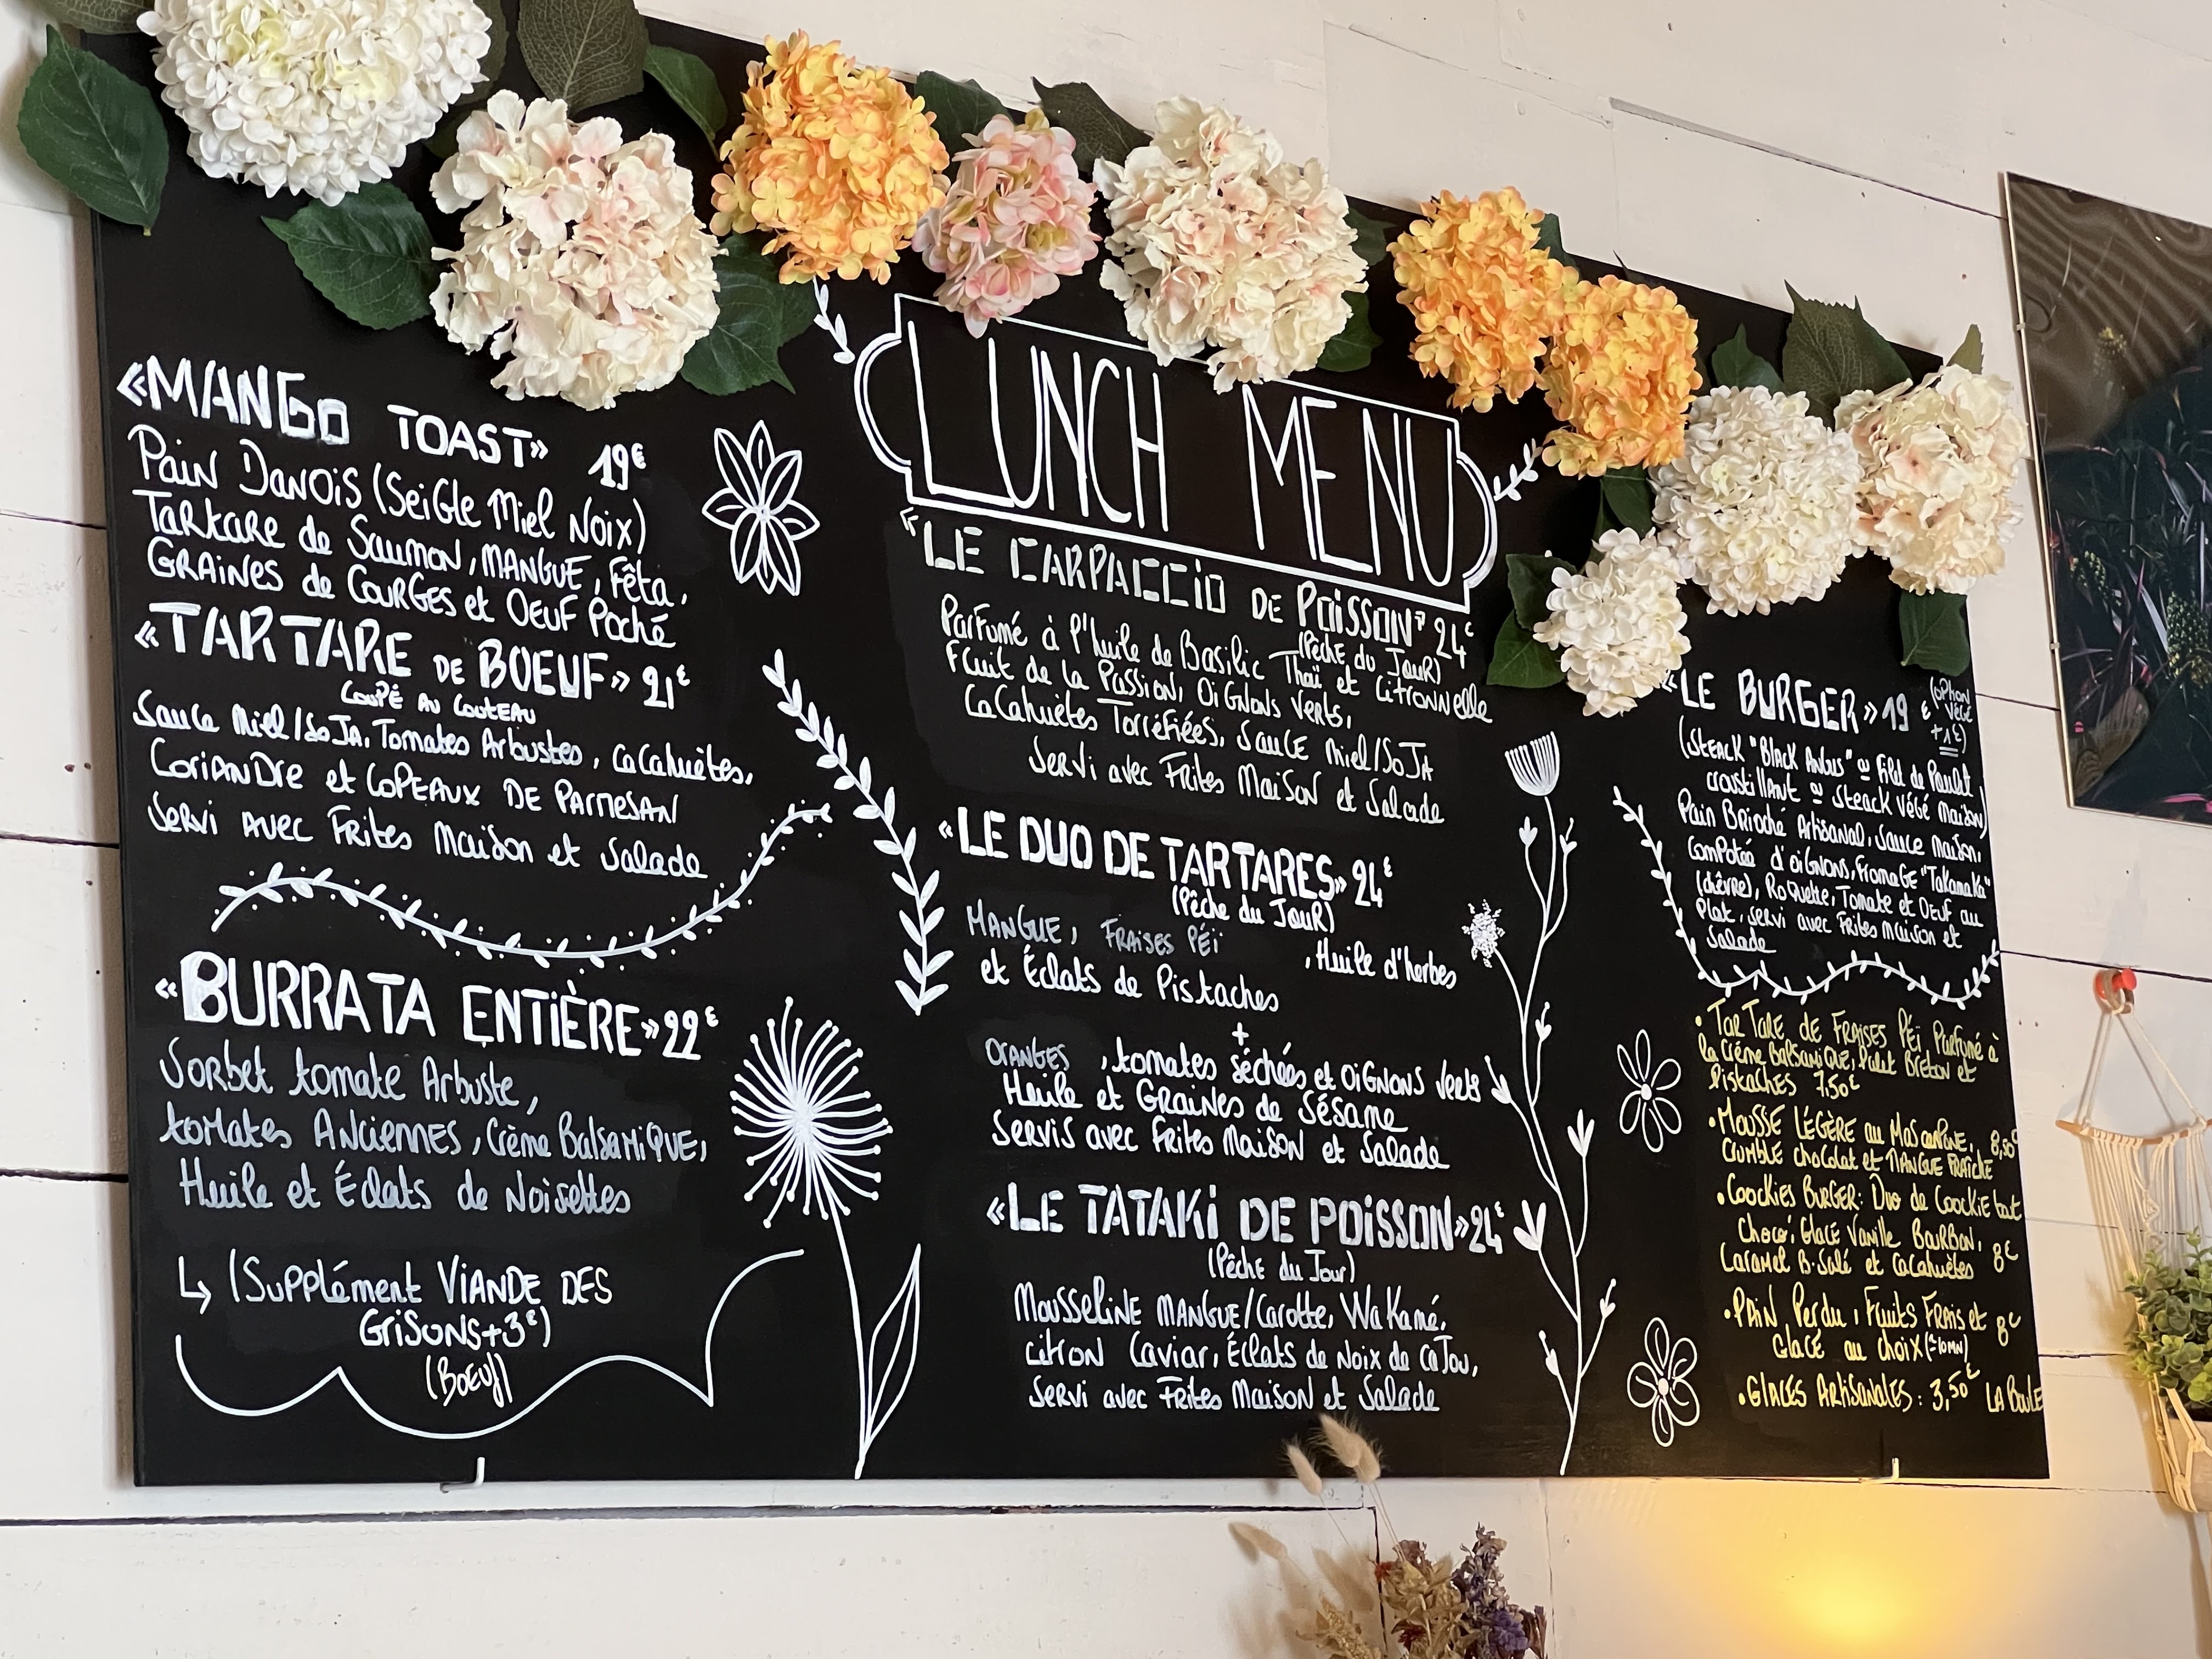 LUNCH MENU
«MANGO TOAST» 19€
Pain Danois (Seigle Miel Noix)
Tartare de Saumon, MANGUE, Fêta,
GRAINES de COURGES et OEUF Poché
«TARTARE DE BOEUF» 21€
COUPÉ AU COUTEAU
Sauce Miel/SoJA, Tomates Arbustes, Cacahuètes,
CORIANDre et COPEAUX DE PARMESAN
Servi AVEC Frites Maison et Salade
«BURRATA ENTIÈRE» 22€
Sorbet tomate Arbuste,
tomates ANCIENNES, Crème BalsaMiQUE,
Huile et Éclats de Noisettes
↳ (Supplément VIANDE DES
GriSONS+3€)
(BOEUf)
«LE CARPACCIO DE POISSON» 24€
(PêCHE du JouR)
ParFumé à l'Huile de Basilic Thaï et Citronnelle
Fruit de la Passion, OiGNons Verts,
CaCahuètes Torréfiées, SauCE Miel/SoJA
Servi avec Frites MaiSon et Salade
«LE DUO DE TARTARES» 24€
(Pêche du JouR)
MANGUE, FRAiSES PÉï , Huile d'herbes
et Éclats de Pistaches
+
ORANGES , tomates séchées et OiGNONS Verts
Huile et GRaines de Sésame
Servis avec Frites Maison et Salade
«LE TATAKi DE POiSSON» 24€
(Pêche du Jour)
MousseliNE MANGUE/Carotte, WaKamé,
citron Caviar, Éclats de Noix de CaJou,
Servi avec Frites Maison et Salade
«LE BURGER» 19 € (OPtion VÉGÉ +1€)
(STEACK "BLACK ANGUS" ou Filet de Poulet
croustillant ou Steack VÉGÉ Maison)
Pain Brioché Artisanal, Sauce Maison,
ComPotée d'OiGNONS, FromaGE "Takamaka"
(chèvre), RoQuette, Tomate et Oeuf au
Plat, Servi avec Frites Maison et
Salade
• TarTare de Fraises Péï Parfumé à
la Crème BalsamiQUE, Palet Breton et
Pistaches 7,50€
• MOUSSE LÉGÈRE au MasCarpone, 8,50€
CRUMBLE chocolat et MANGUE FRAÎCHE
• Coockies BURGER: Duo de Coockie tout
Choco, Glace Vanille BouRBon, 8€
Caramel B.Salé et CaCahuètes
• PAIN Perdu, Fruits FRais et 8€
GlaCE au choix (≈10MN)
• GLACES ARtiSANALES: 3,50€ LA BouLE